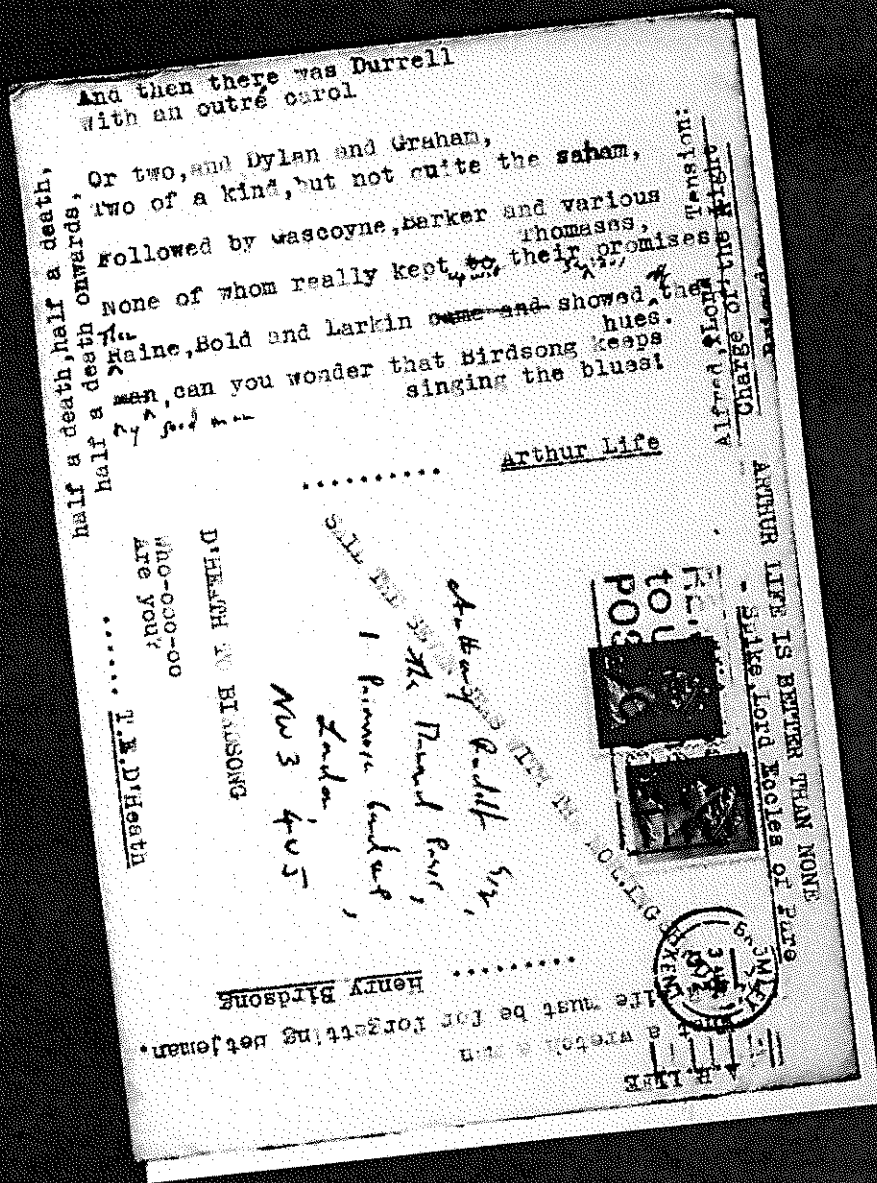 And then there was Durrell
with an outré carol
Or two,and Dylan and Graham,
Two of a kind,but not quite the saham,
Followed by Gascoyne,Barker and various
Thomases,
None of whom really kept to their promises
Then
Raine,Bold and Larkin came and showed the
hues.
man,can you wonder that Birdsong keeps
my good man
singing the blues!
..........
Arthur Life
half a death,half a death,
half a death onwards,
Alfred,Long Tension:
Charge of the Light
ARTHUR LIFE IS BETTER THAN NONE
- Spike,Lord Eccles of Pure
to u
POS
Anthony Rudolf Esq,
The Menard Press,
1 Primrose Gardens,
London,
NW3 4UJ
D'HEATH TO BIRDSONG
Who-ooo-oo
Are you?
...... T.E.D'Heath
BROMLEY
KENT
A.R.LIFE
What a wretch
Life must be for forgetting Betjeman.
..........
Henry Birdsong